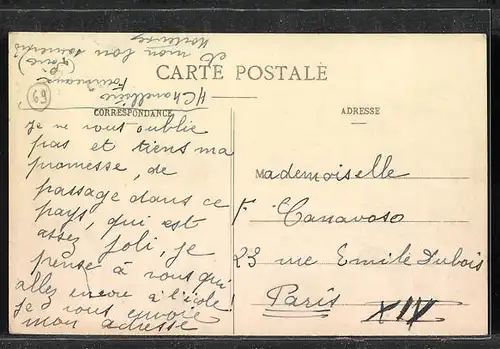 CARTE POSTALE
CORRESPONDANCE
ADRESSE
69
Je ne vous oublie
pas et tiens ma
promesse, de
passage dans ce
pays, qui est
assez joli, je
pense à vous qui
allez encore à l'école!
je vous envoie
mon adresse
et
mon bon souvenir
Mademoiselle
F Canavoso
23 rue Emile Dubois
Paris XIV